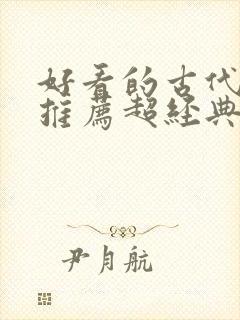 好看的古代
推薦超經典
尹月航